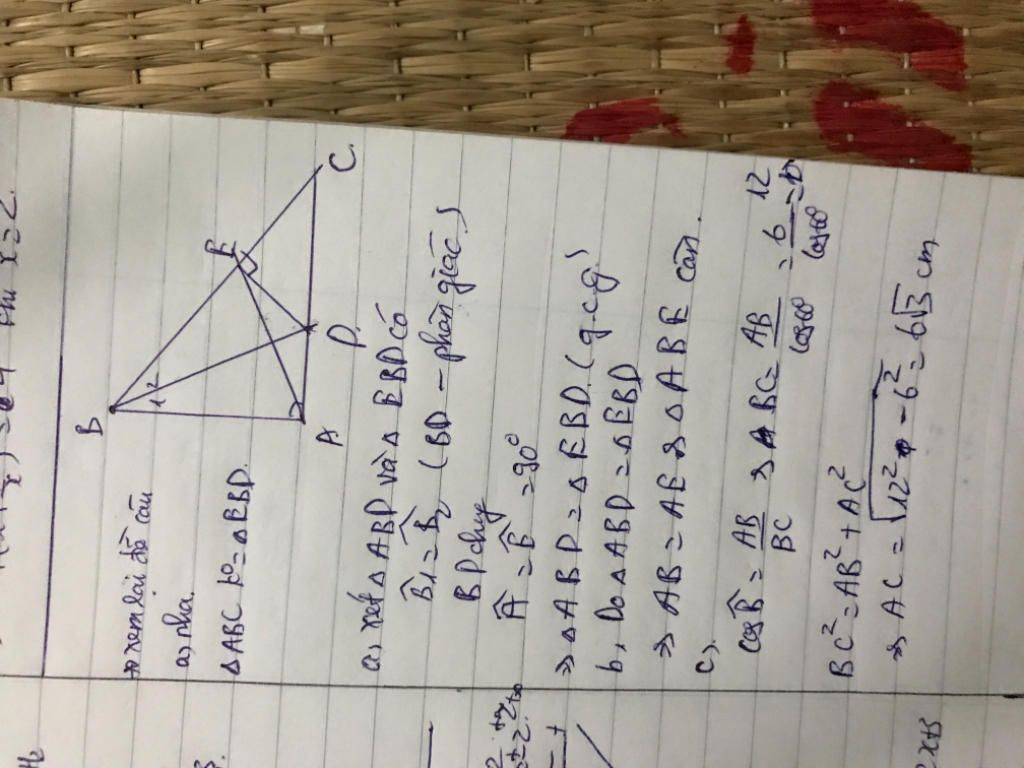 B
1 2
E
A
D
C
xem lại đề câu
a, nha.
ΔABC k° = ΔEBD.
a, xét ΔABD và Δ EBD có
B̂1 = B̂2 (BD - phân giác)
BD chung
Â = Ê = 90°
=> ΔABD = ΔEBD (g.c.g)
b, Do ΔABD = ΔEBD
=> AB = AE => ΔABE cân.
c,
cos B̂ = AB/BC => BC = AB/cos60° = 6/cos60° = 12
BC² = AB² + AC²
=> AC = √12² - 6² = 6√3 cm
2x+3